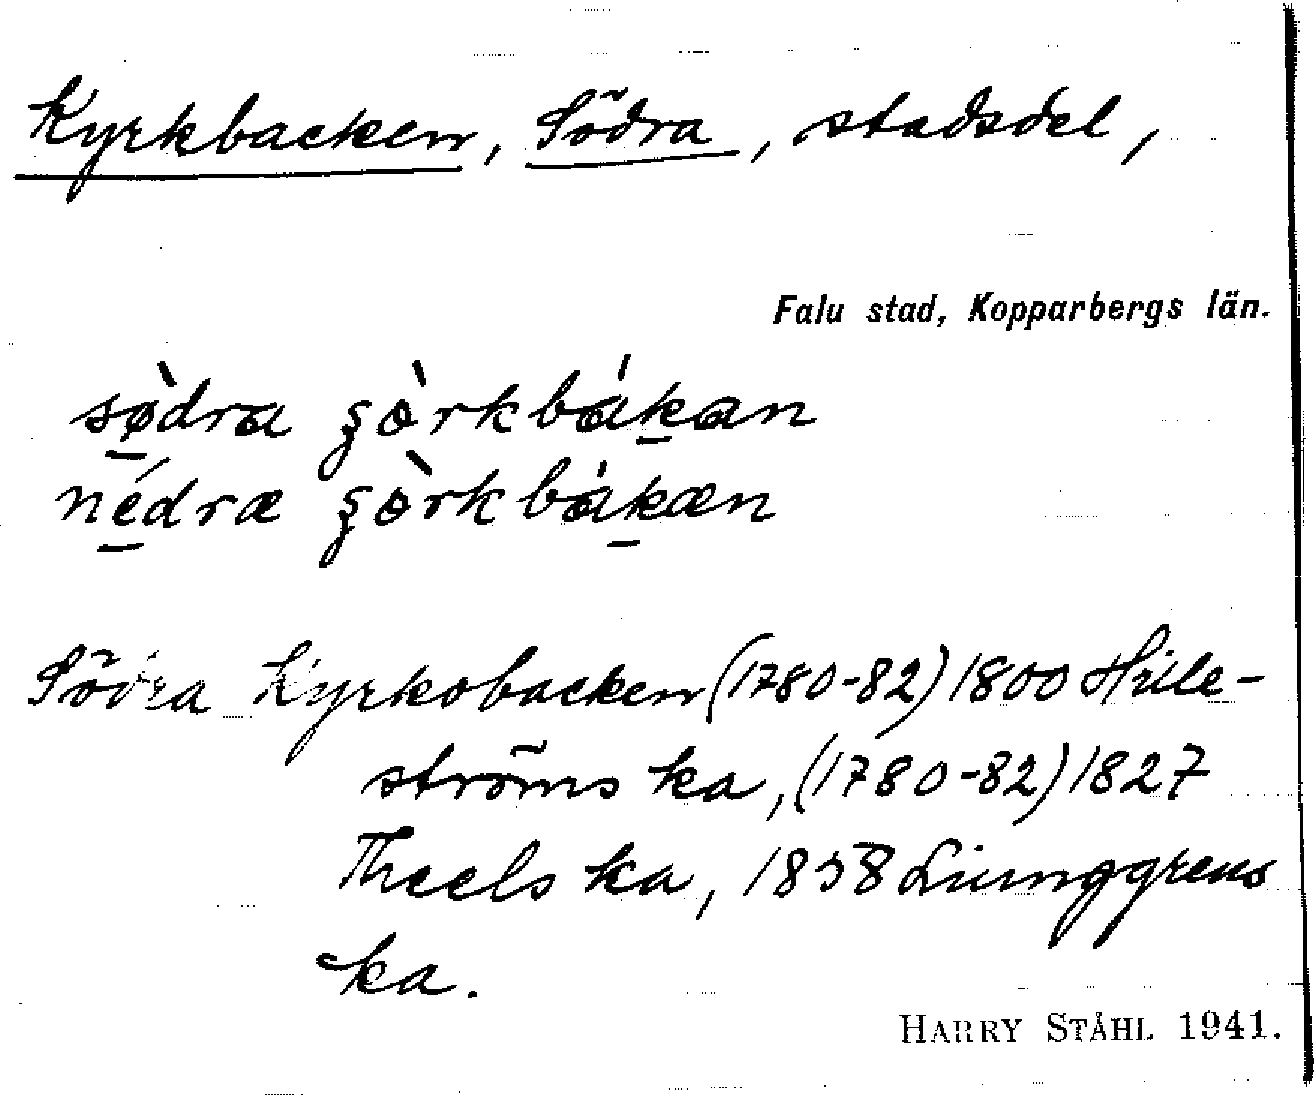 Kyrkbacken, Södra, stadsdel,
Falu stad, Kopparbergs län.
sø̀dra ȿòrkbákan
nédræ ȿòrkbákæn
Södra Kyrkobacken (1780-82) 1800 Hille-
ströms ka, (1780-82) 1827
Theels ka, 1858 Liunggrens
ka.
HARRY STÅHL 1941.